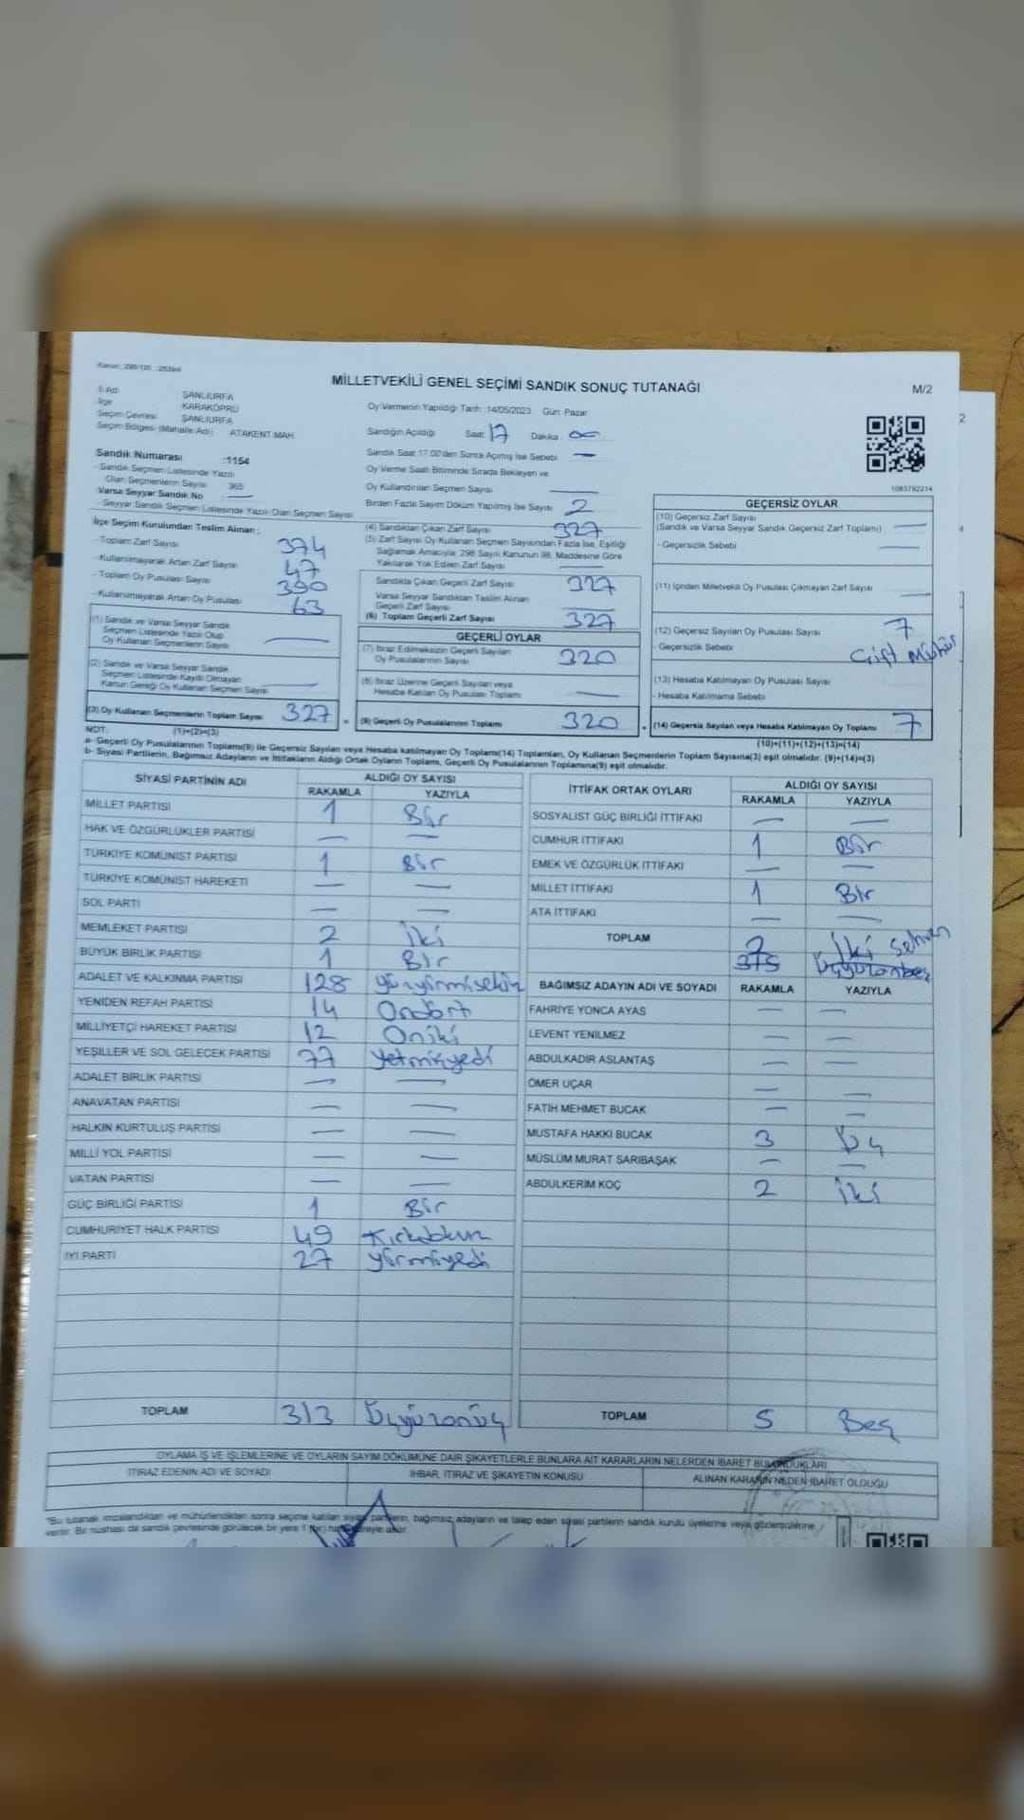 MİLLETVEKİLİ GENEL SEÇİMİ SANDIK SONUÇ TUTANAĞI
M/2
İl Adı ŞANLIURFA
İlçe KARAKÖPRÜ
Seçim Çevresi ŞANLIURFA
Seçim Bölgesi (Mahalle Adı) ATAKENT MAH.
Oy Vermenin Yapıldığı Tarih :14/05/2023 Gün: Pazar
Sandığın Açıldığı Saat: 17 Dakika:
Sandık Saat 17.00'den Sonra Açılmış İse Sebebi —
Oy Verme Saati Bitiminde Sırada Bekleyen ve
Oy Kullandırılan Seçmen Sayısı —
Birden Fazla Sayım Döküm Yapılmış İse Sayısı 2
Sandık Numarası :1154
- Sandık Seçmen Listesinde Yazılı
Olan Seçmenlerin Sayısı 365
Varsa Seyyar Sandık No —
- Seyyar Sandık Seçmen Listesinde Yazılı Olan Seçmen Sayısı
İlçe Seçim Kurulundan Teslim Alınan ;
- Toplam Zarf Sayısı 374
- Kullanılmayarak Artan Zarf Sayısı 47
- Toplam Oy Pusulası Sayısı 390
- Kullanılmayarak Artan Oy Pusulası 63
(1) Sandık ve Varsa Seyyar Sandık
Seçmen Listesinde Yazılı Olup
Oy Kullanan Seçmenlerin Sayısı —
(2) Sandık ve Varsa Seyyar Sandık
Seçmen Listesinde Kaydı Olmayan
Kanun Gereği Oy Kullanan Seçmen Sayısı —
(3) Oy Kullanan Seçmenlerin Toplam Sayısı 327
(1)+(2)=(3)
(4) Sandıktan Çıkan Zarf Sayısı 327
(5) Zarf Sayısı Oy Kullanan Seçmen Sayısından Fazla İse, Eşitliği
Sağlamak Amacıyla, 298 Sayılı Kanunun 98. Maddesine Göre
Yakılarak Yok Edilen Zarf Sayısı —
Sandıkta Çıkan Geçerli Zarf Sayısı 327
Varsa Seyyar Sandıktan Teslim Alınan
Geçerli Zarf Sayısı —
(6) Toplam Geçerli Zarf Sayısı 327
GEÇERLİ OYLAR
(7) İtiraz Edilmeksizin Geçerli Sayılan
Oy Pusulalarının Sayısı 320
(8) İtiraz Üzerine Geçerli Sayılan veya
Hesaba Katılan Oy Pusulası Toplamı —
(9) Geçerli Oy Pusulalarının Toplamı 320
1083782214
GEÇERSİZ OYLAR
(10) Geçersiz Zarf Sayısı
(Sandık ve Varsa Seyyar Sandık Geçersiz Zarf Toplamı) —
- Geçersizlik Sebebi —
(11) İçinden Milletvekili Oy Pusulası Çıkmayan Zarf Sayısı —
(12) Geçersiz Sayılan Oy Pusulası Sayısı 7
- Geçersizlik Sebebi Çift Mühür
(13) Hesaba Katılmayan Oy Pusulası Sayısı
- Hesaba Katılmama Sebebi
(14) Geçersiz Sayılan veya Hesaba Katılmayan Oy Toplamı 7
(10)+(11)+(12)+(13)=(14)
NOT:
a- Geçerli Oy Pusulalarının Toplamı(9) ile Geçersiz Sayılan veya Hesaba katılmayan Oy Toplamı(14) Toplamları, Oy Kullanan Seçmenlerin Toplam Sayısına(3) eşit olmalıdır. (9)+(14)=(3)
b- Siyasi Partilerin, Bağımsız Adayların ve İttifakların Aldığı Ortak Oyların Toplamı, Geçerli Oy Pusulalarının Toplamına(9) eşit olmalıdır.
SİYASİ PARTİNİN ADI ALDIĞI OY SAYISI
RAKAMLA YAZIYLA
MİLLET PARTİSİ 1 Bir
HAK VE ÖZGÜRLÜKLER PARTİSİ — —
TÜRKİYE KOMÜNİST PARTİSİ 1 Bir
TÜRKİYE KOMÜNİST HAREKETİ — —
SOL PARTİ — —
MEMLEKET PARTİSİ 2 İki
BÜYÜK BİRLİK PARTİSİ 1 Bir
ADALET VE KALKINMA PARTİSİ 128 yüzyirmisekiz
YENİDEN REFAH PARTİSİ 14 Ondört
MİLLİYETÇİ HAREKET PARTİSİ 12 Oniki
YEŞİLLER VE SOL GELECEK PARTİSİ 77 yetmişyedi
ADALET BİRLİK PARTİSİ — —
ANAVATAN PARTİSİ — —
HALKIN KURTULUŞ PARTİSİ — —
MİLLİ YOL PARTİSİ — —
VATAN PARTİSİ — —
GÜÇ BİRLİĞİ PARTİSİ 1 Bir
CUMHURİYET HALK PARTİSİ 49 Kırkdokuz
İYİ PARTİ 27 yirmiyedi
TOPLAM 313 Üçyüzonüç
İTTİFAK ORTAK OYLARI ALDIĞI OY SAYISI
RAKAMLA YAZIYLA
SOSYALİST GÜÇ BİRLİĞİ İTTİFAKI — —
CUMHUR İTTİFAKI 1 Bir
EMEK VE ÖZGÜRLÜK İTTİFAKI — —
MİLLET İTTİFAKI 1 Bir
ATA İTTİFAKI — —
TOPLAM 2 İki sehven
315 Üçyüzonbeş
BAĞIMSIZ ADAYIN ADI VE SOYADI RAKAMLA YAZIYLA
FAHRİYE YONCA AYAS — —
LEVENT YENİLMEZ — —
ABDULKADİR ASLANTAŞ — —
ÖMER UÇAR — —
FATİH MEHMET BUCAK — —
MUSTAFA HAKKI BUCAK 3 Üç
MÜSLÜM MURAT SARIBAŞAK — —
ABDULKERİM KOÇ 2 İki
TOPLAM 5 Beş
OYLAMA İŞ VE İŞLEMLERİNE VE OYLARIN SAYIM DÖKÜMÜNE DAİR ŞİKAYETLERLE BUNLARA AİT KARARLARIN NELERDEN İBARET BULUNDUKLARI
İTİRAZ EDENİN ADI VE SOYADI İHBAR, İTİRAZ VE ŞİKAYETİN KONUSU ALINAN KARARIN NEDEN İBARET OLDUĞU